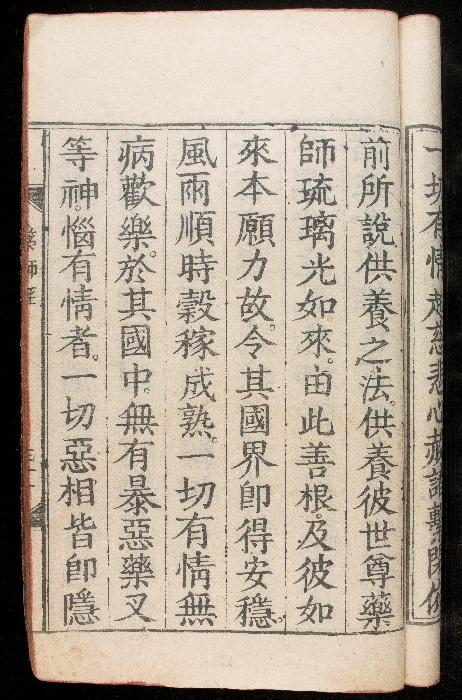 一切有情起慈悲心赦諸繫閉依
前所說供養之法。供養彼世尊藥
師琉璃光如來。由此善根。及彼如
來本願力故。令其國界即得安穩。
風雨順時穀稼成熟。一切有情無
病歡樂。於其國中。無有暴惡藥叉
等神。惱有情者。一切惡相皆即隱
藥師經